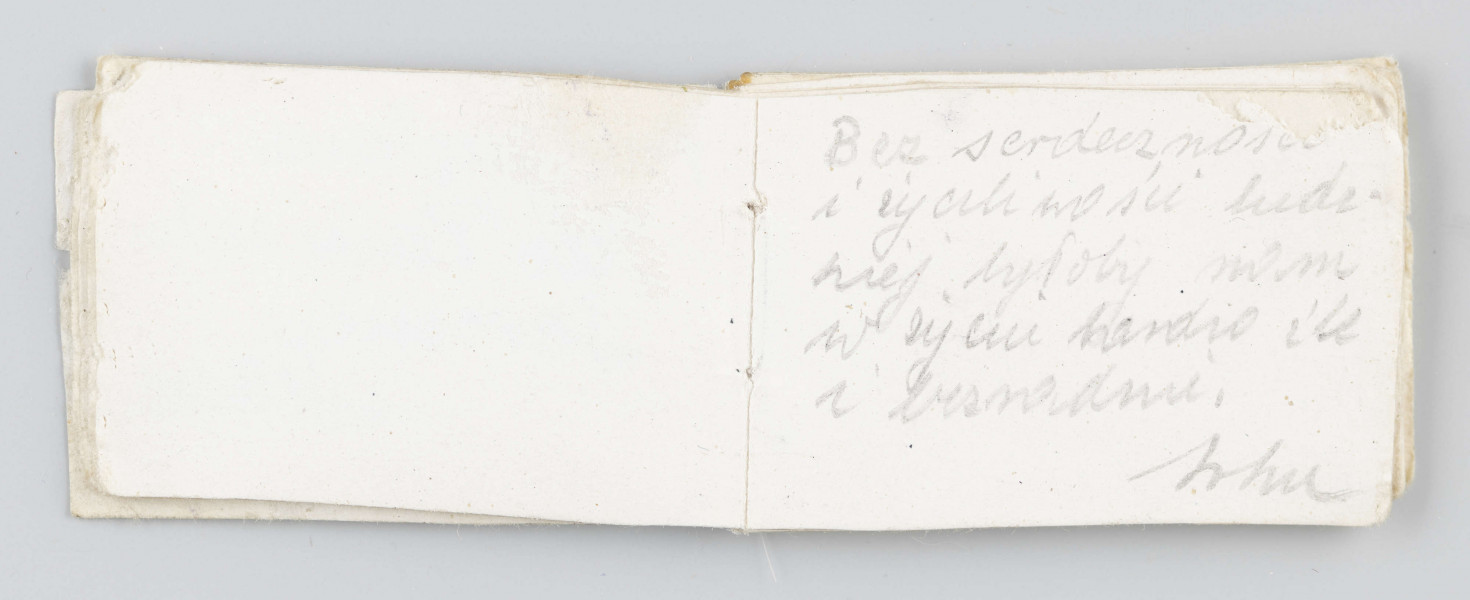 Bez serdeczności
i życzliwości ludz-
kiej byłoby nam
w życiu bardzo źle
i bezradnie.